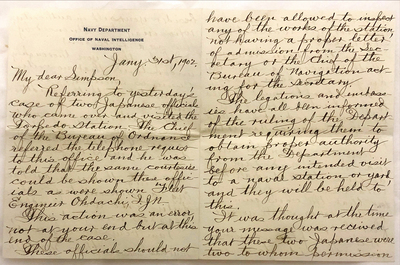 NAVY DEPARTMENT
OFFICE OF NAVAL INTELLIGENCE
WASHINGTON
Jany 31st, 1902.
My dear Simpson,
Referring to yesterday's
case of two Japanese officials
who came over and visited the
Torpedo Station. The Chief
of the Bureau of Ordnance
refered the telephone request
to this office and he was
told that the same courtesies
could be shown this offic-
ials as were shown Fleet
Engineer Ohdachi, I.J.N.
This action was an error,
not at your end but at this
end of the case.
These officials should not
have been allowed to inspect
any of the works of the station
not having a proper letter
of admission from the Sec-
retary or the Chief of the
Bureau of Navigation act-
ing for the Secretary.
The legations and embass-
ies have all been informed
of the ruling of the Depart-
ment requiring them to
obtain proper authority
from the Department
before any intended visit
to a naval station or yard
and they will be held to
this.
It was thought at the time
your message was received
that these two Japanese were
two to whom permission